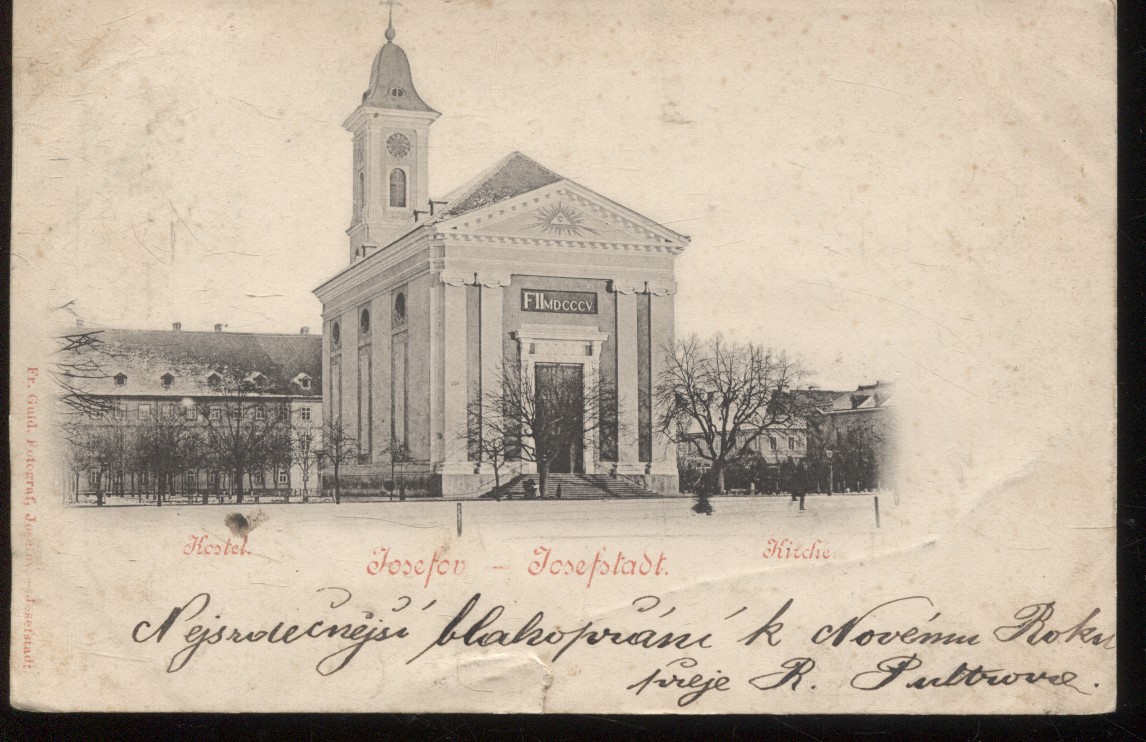 FIIMDCCCV
Fr. Guid. Fotograf, Josefov – Josefstadt.
Kostel. Kirche.
Josefov – Josefstadt.
Nejsrdečnější blahopřání k Novému Roku
přeje R. Pultrova.